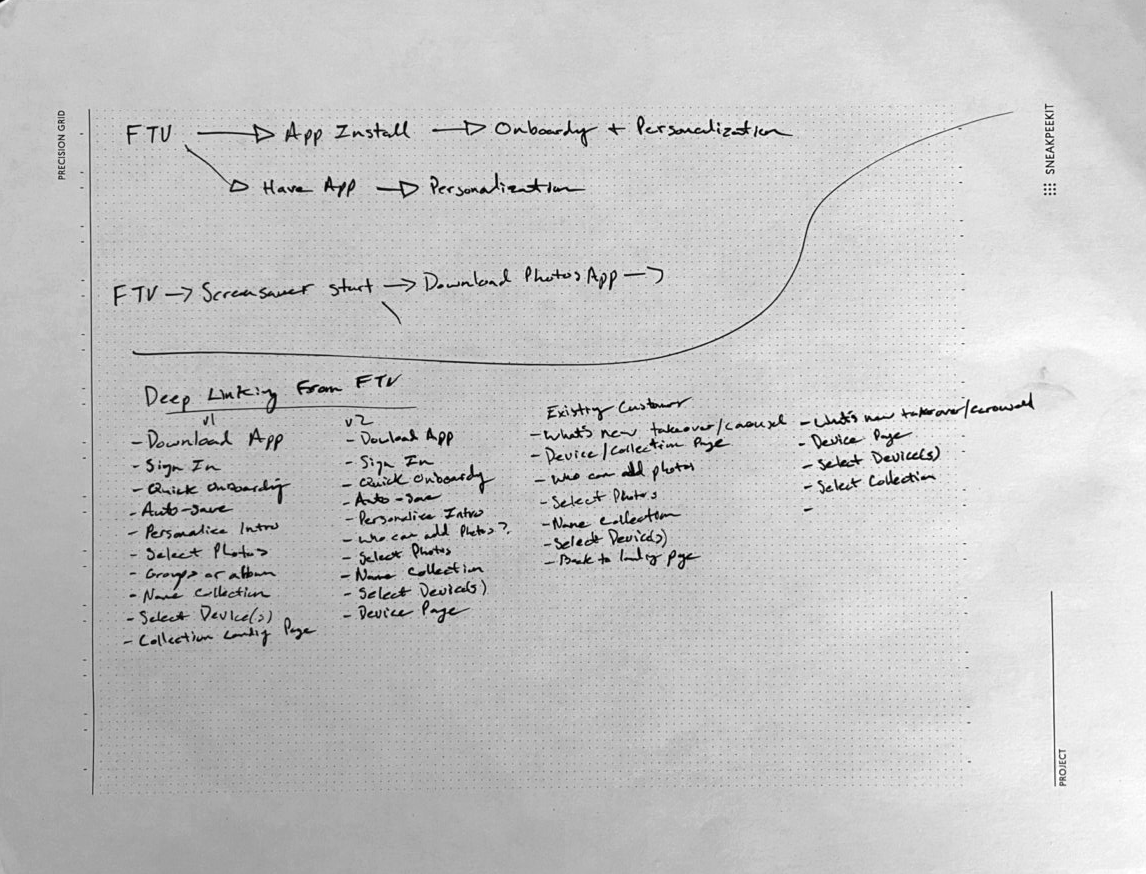 PRECISION GRID
SNEAKPEEKIT
FTV → App Install → Onboardy + Personalization
→ Have App → Personalization
FTV → Screensaver start → Download Photos App →
Deep Linking From FTV
v1
- Download App
- Sign In
- Quick Onboarding
- Auto-save
- Personalize Intro
- Select Photos
- Groups or album
- Name Collection
- Select Device(s)
- Collection Landig Page
v2
- Dowload App
- Sign In
- Quick Onboardy
- Auto-save
- Personalize Intro
- Who can add Photos?
- Select Photos
- Name Collection
- Select Device(s)
- Device Page
Existing Customer
- What's new takeover/carousel
- Device/Collection Page
- Who can add photos
- Select Photos
- Name Collection
- Select Device(s)
- Back to landig page
- What's new takeover/carousel
- Device Page
- Select Device(s)
- Select Collection
-
PROJECT